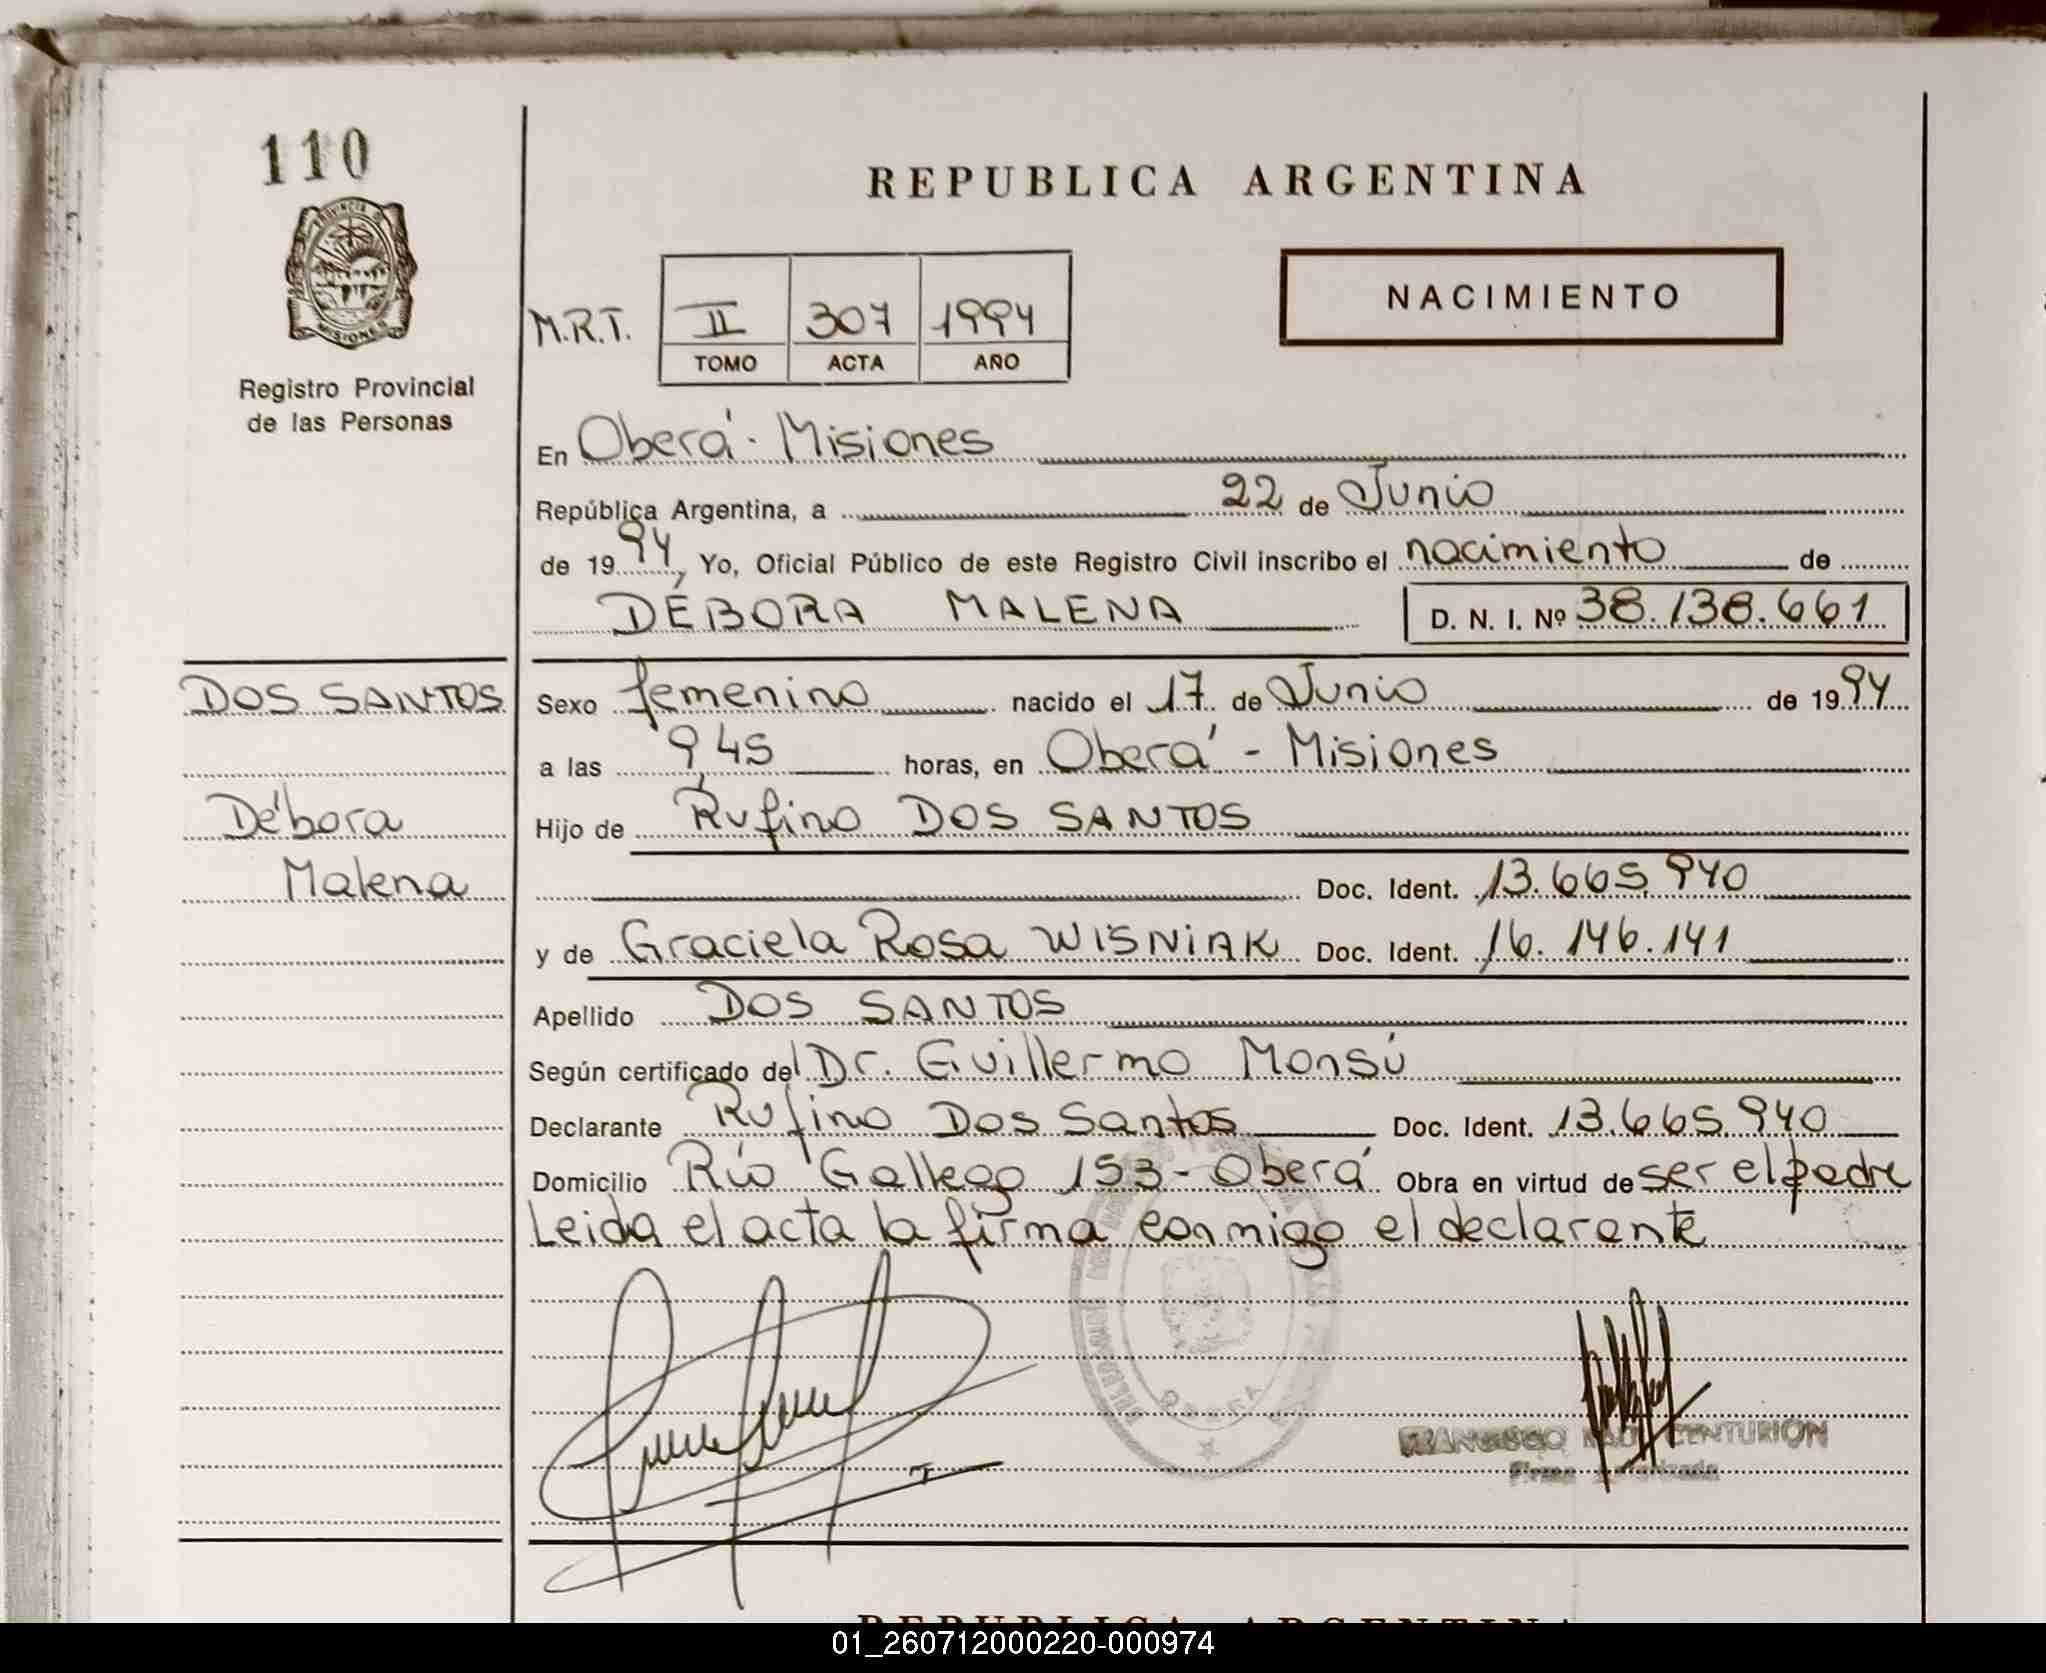 110
PROVINCIA DE
MISIONES
Registro Provincial
de las Personas
REPUBLICA ARGENTINA
NACIMIENTO
M.R.T. II 307 1994
TOMO ACTA AÑO
En Oberá - Misiones
República Argentina, a 22 de Junio
de 1994, Yo, Oficial Público de este Registro Civil inscribo el nacimiento de
DÉBORA MALENA D. N. I. Nº 38.138.661
DOS SANTOS
Débora
Malena
Sexo femenino nacido el 17 de Junio de 1994
a las 9,45 horas, en Oberá - Misiones
Hijo de Rufino DOS SANTOS
Doc. Ident. 13.665.940
y de Graciela Rosa WISNIAK Doc. Ident. 16.146.141
Apellido DOS SANTOS
Según certificado del Dr. Guillermo Monsú
Declarante Rufino Dos Santos Doc. Ident. 13.665.940
Domicilio Río Gallego 153 - Oberá Obra en virtud de ser el padre
Leida el acta la firma conmigo el declarante
OBERA
CENTURION
Firma Autorizada
REPUBLICA ARGENTINA
01_260712000220-000974